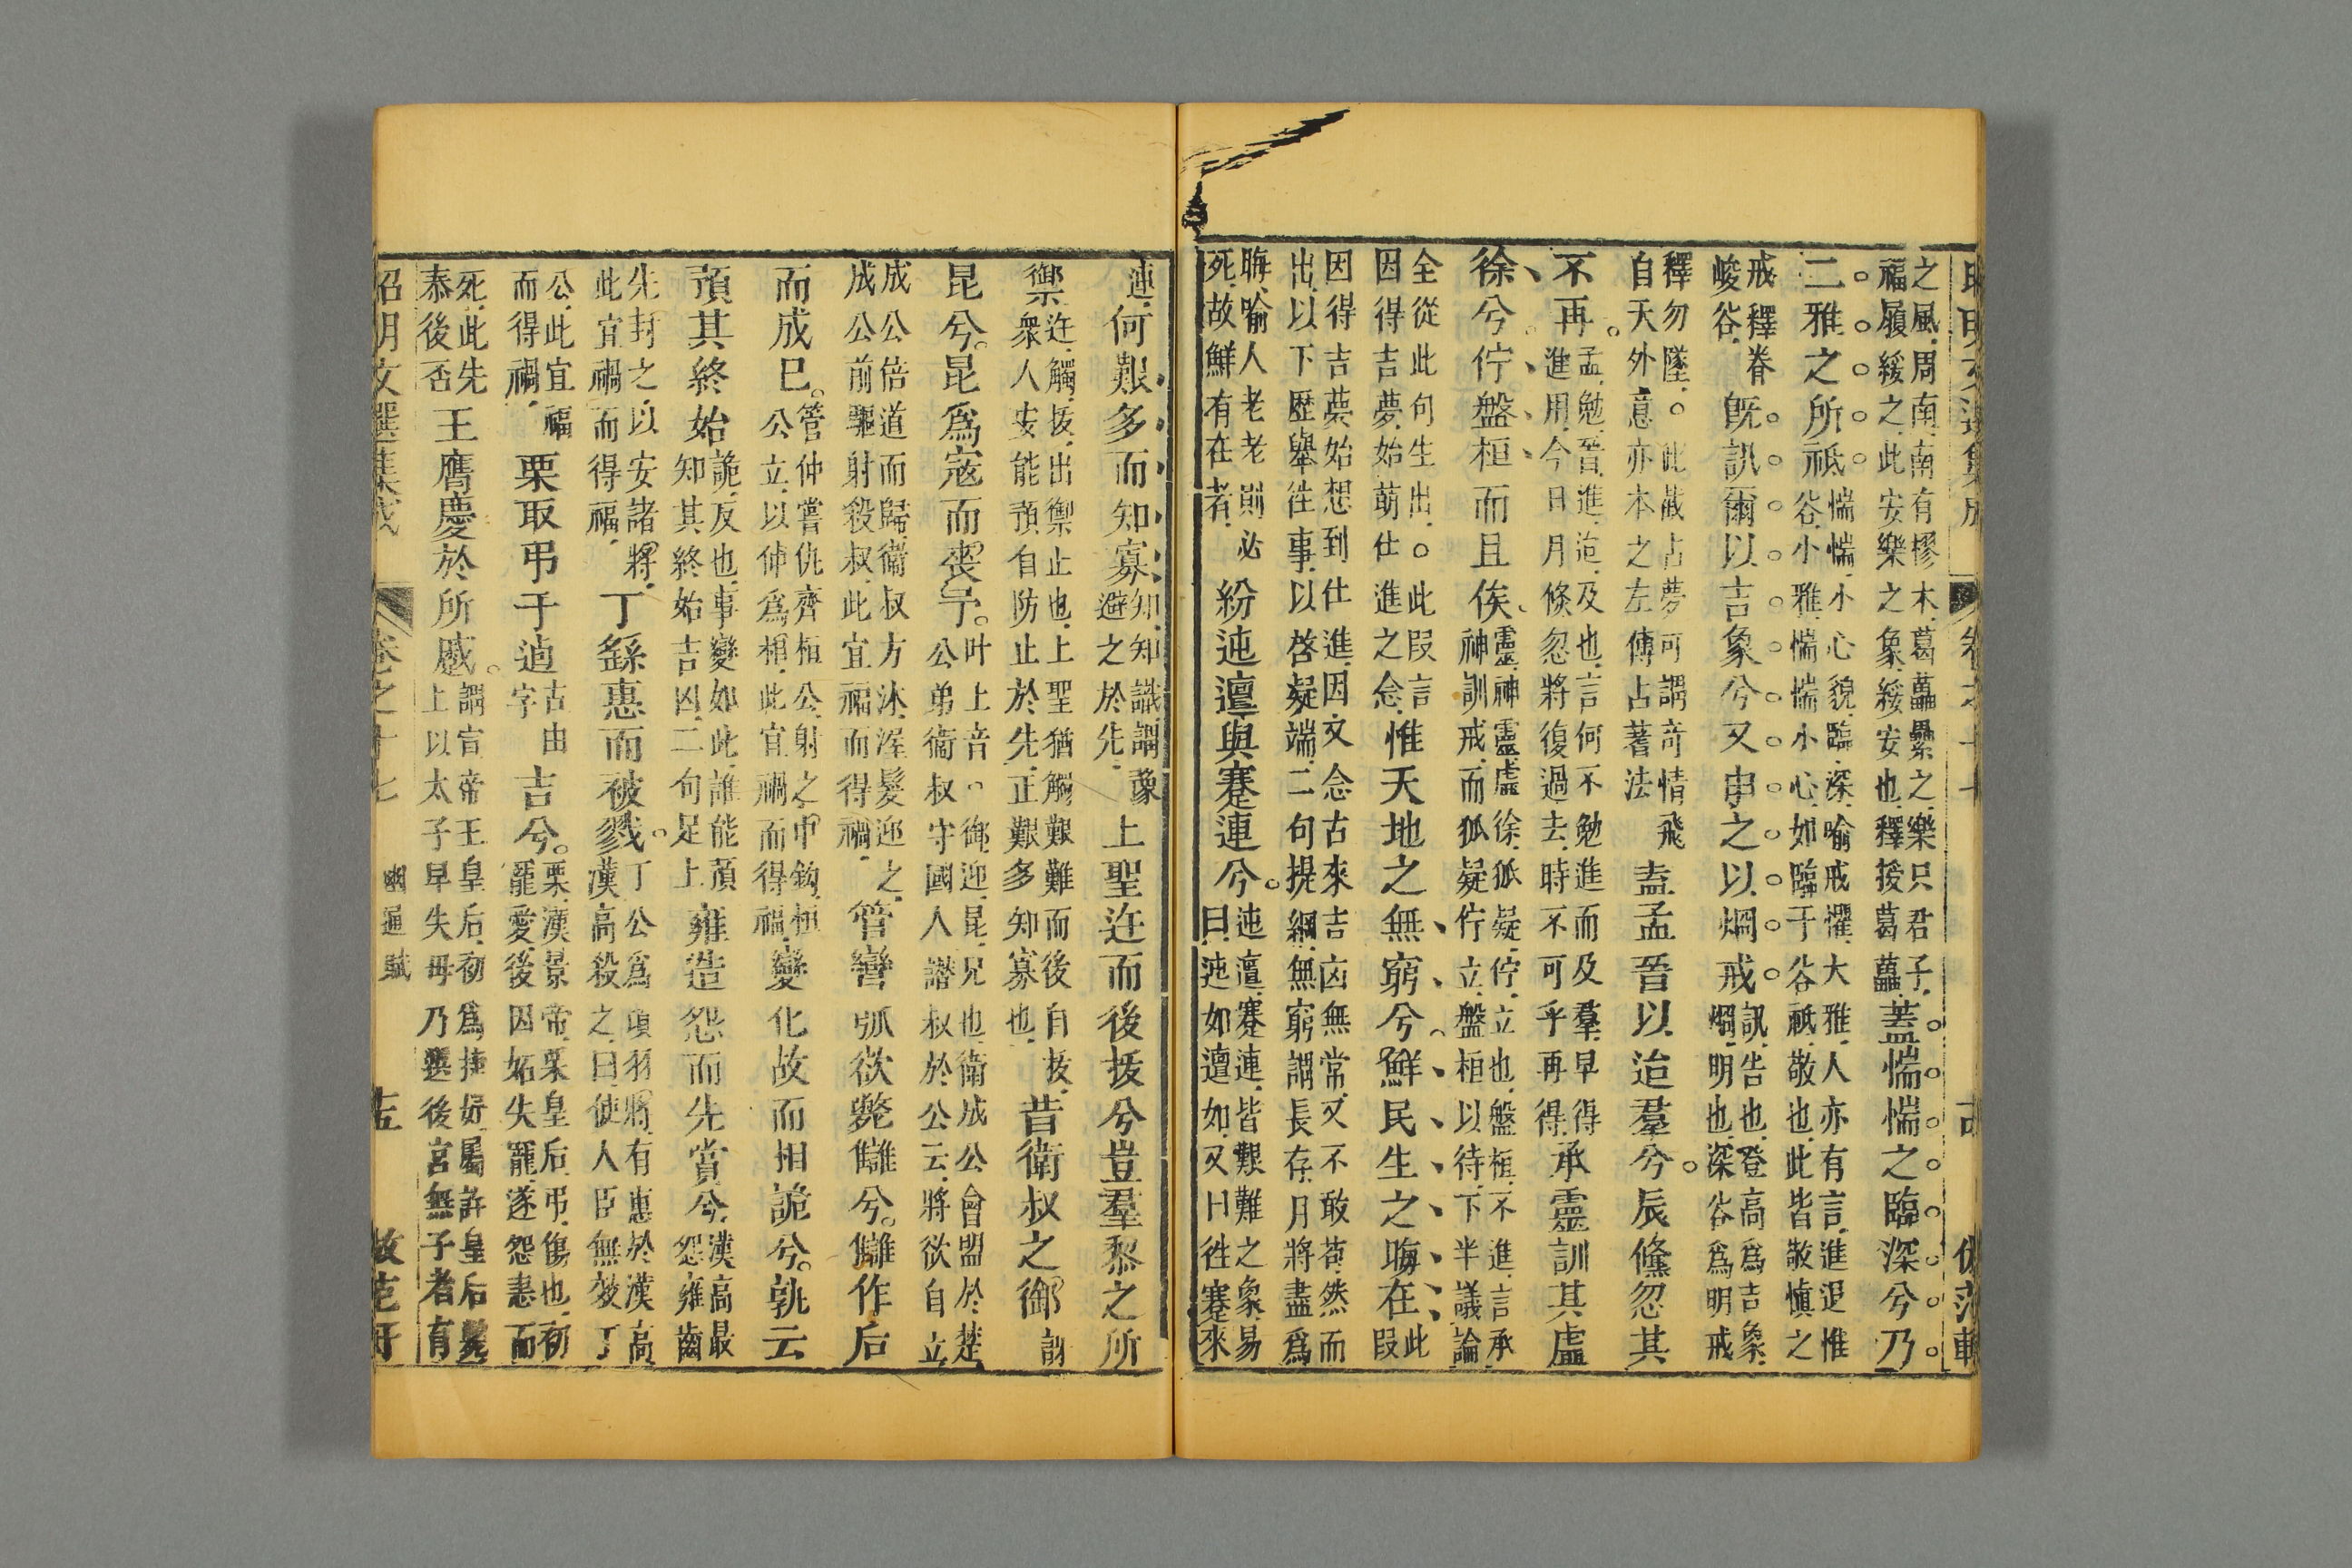 昭明文選集成 卷之十七 古 倣范軒
之風周南南有樛木葛藟纍之樂只君子
福履綏之此安樂之象綏安也釋援葛藟 蓋惴惴之臨深兮乃
二雅之所祇 惴惴小心貌臨深喻戒懼大雅人亦有言進退惟
谷小雅惴惴小心如臨于谷祇敬也此皆敬慎之
戒釋眷
峻谷 旣訊爾以吉象兮又申之以烱戒 訊告也登高爲吉象
烱明也深谷爲明戒
釋勿墜。此蔽占夢可謂奇情飛
自天外意亦本之左傳占著法 盍孟晉以迨羣兮辰倏忽其
不再 孟勉晉進迨及也言何不勉進而及羣早得
進用今日月倏忽將復過去時不可乎再得 承靈訓其虛
徐兮佇盤桓而且俟 靈神靈虛徐狐疑佇立也盤桓不進言承
神訓戒而狐疑佇立盤桓以待下半議論
全從此句生出。此段言
因得吉夢始萌仕進之念 惟天地之無窮兮鮮民生之晦在 此
段
因得吉夢始想到仕進因文念古來吉凶無常又不敢苟然而
出以下歷舉往事以啓疑端二句提綱無窮謂長存月將盡爲
晦喻人老老則必
死故鮮有在者 紛迍邅與蹇連兮 迍邅蹇連皆艱難之象易
曰迍如邅如又曰往蹇來
連 何艱多而知寡 知知識謂豫
避之於先 上聖迕而後拔兮豈羣黎之所
禦 迕觸拔出禦止也上聖猶觸艱難而後自拔
衆人安能預自防止於先正艱多知寡也 昔衛叔之御 謂
昆兮昆爲寇而喪予 叶上音。御迎昆兄也衛成公會盟於楚
公弟衛叔守國人譖叔於公云將欲自立
成公倍道而歸衞叔方沐渥髮迎之
成公前驅射殺叔此宜福而得禍 管彎弧欲斃讎兮讎作后
而成已 管仲嘗仇齊桓公射之中鈎桓
公立以仲爲相此宜禍而得福 變化故而相詭兮孰云
預其終始 詭反也事變如此誰能預
知其終始吉凶二句足上 雍造怨而先賞兮 漢高最
怨雍齒
先封之以安諸將
此宜禍而得福 丁繇惠而被戮 丁公爲項羽將有惠於漢高
漢高殺之曰使人臣無效丁
公此宜福
而得禍 栗取弔于逌 古由
字 吉兮 栗漢景帝栗皇后弔傷也初
寵愛後因妬失寵遂怨恚而
死此先
泰後否 王膺慶於所慼 謂宣帝王皇后初爲捷妤屬許皇后薨
上以太子早失母乃選後宮無子者有
昭明文選集成 卷之十七 幽通賦 十五 倣范軒